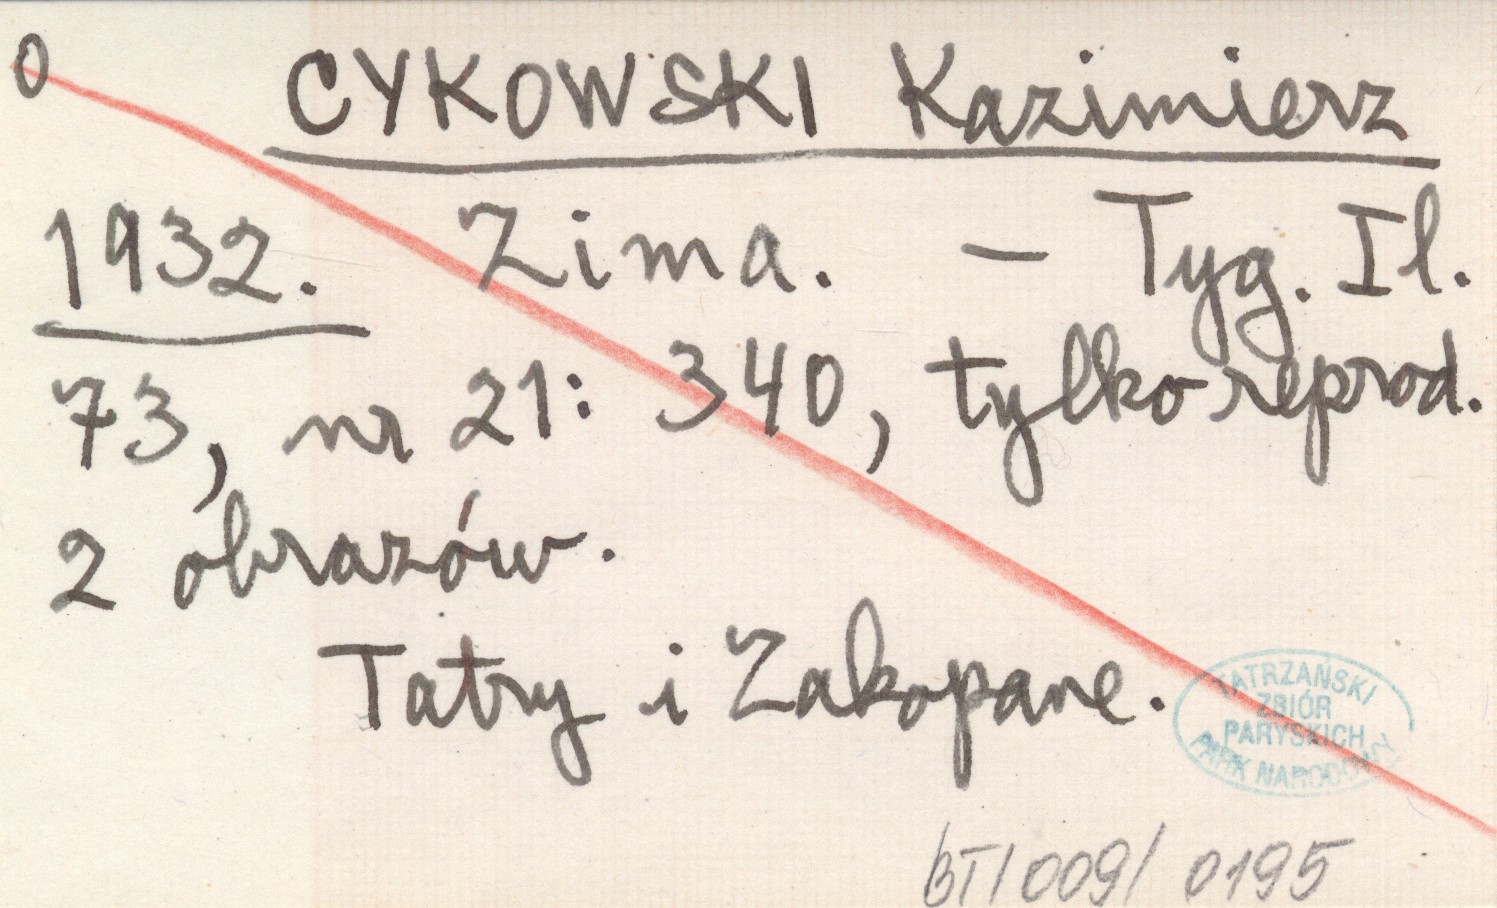 0
CYKOWSKI Kazimierz
1932. Zima. – Tyg. Il.
73, nr 21: 340, tylko reprod.
2 obrazów.
Tatry i Zakopane.
TATRZAŃSKI
ZBIÓR
PARYSKICH
PARK NARODOWY
BT/009/0195